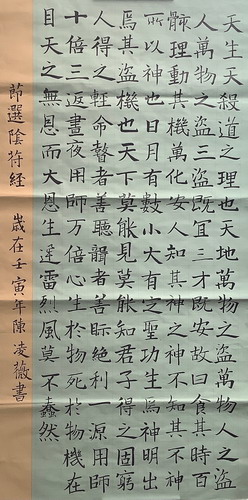 天生天殺道之理也天地萬物之盜萬物人之盜
人萬物之盜三盜既宜三才既安故曰食其時百
骸理動其機萬化安人知其神之神不知其不神
所以神也日月有數小大有定聖功生焉神明出
焉其盜機也天下莫能見莫能知君子得之固窮
人得之輕命瞽者善聽聾者善眎絕利一源用師
十倍三返晝夜用師萬倍心生於物死於物機在
目天之無恩而大恩生迅雷烈風莫不蠢然
節選陰符經 歲在壬寅年陳凌薇書